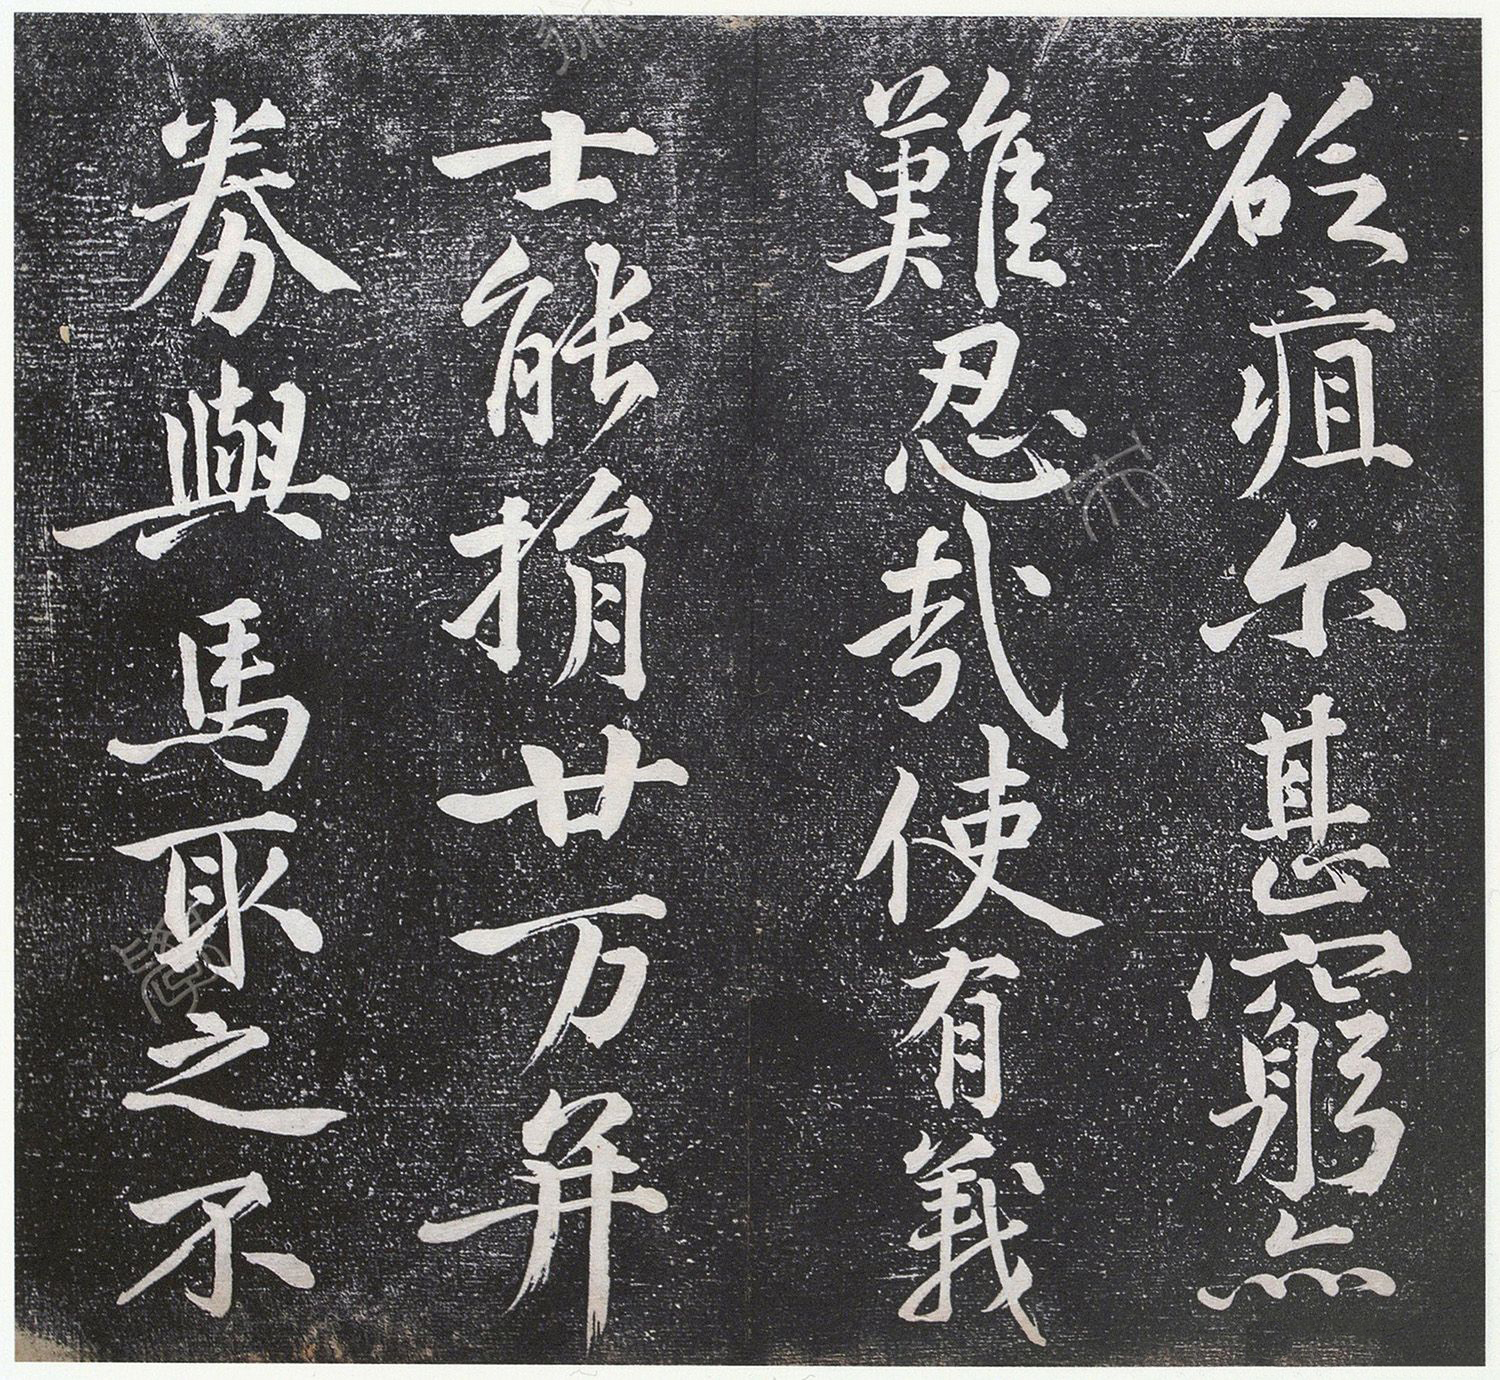 砭疽尔甚窮亦
難忍哉使有義
士能捐廿万并
券與馬取之不